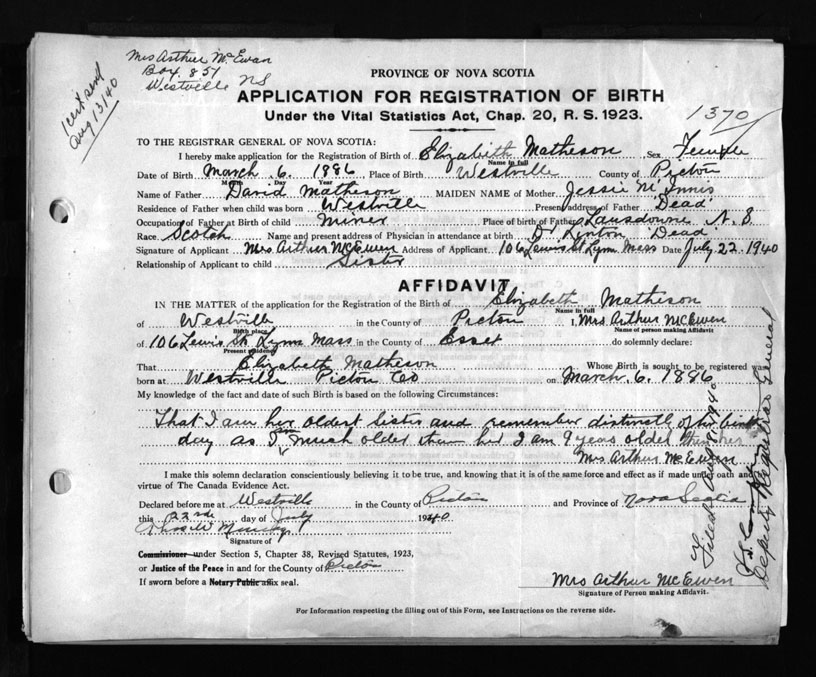 Mrs Arthur McEwan
Box 851
Westville NS
1 cert. sent
Aug 13/40
PROVINCE OF NOVA SCOTIA
APPLICATION FOR REGISTRATION OF BIRTH
Under the Vital Statistics Act, Chap. 20, R. S. 1923.
1370
TO THE REGISTRAR GENERAL OF NOVA SCOTIA:
I hereby make application for the Registration of Birth of Elizabeth Matheson Sex Female
Name in full
Date of Birth March 6. 1886 Place of Birth Westville County of Pictou
Month Day Year
Name of Father David Matheson MAIDEN NAME of Mother Jessie McInnis
Residence of Father when child was born Westville Present address of Father Dead
Occupation of Father at Birth of child Miner Place of birth of Father Lansdowne N. S.
Race Scotch Name and present address of Physician in attendance at birth Dr Dead
Signature of Applicant Mrs. Arthur McEwen Address of Applicant 106 Lewis St Lynn Mass Date July 22. 1940
Relationship of Applicant to child Sister
AFFIDAVIT
IN THE MATTER of the application for the Registration of the Birth of Elizabeth Matheson
Name in full
of Westville in the County of Pictou I, Mrs Arthur McEwen
Birth place Name of person making affidavit
of 106 Lewis St. Lynn Mass in the County of Essex do solemnly declare:
Present residence
That Elizabeth Matheson Whose Birth is sought to be registered was
born at Westville Pictou Co on March. 6. 1886
My knowledge of the fact and date of such Birth is based on the following Circumstances:
That I am her oldest Sister and remember distinctly of her birth
day as I am much older than her I am 9 years older then her
Mrs Arthur McEwen
I make this solemn declaration conscientiously believing it to be true, and knowing that it is of the same force and effect as if made under oath and
virtue of The Canada Evidence Act.
Declared before me at Westville in the County of Pictou and Province of Nova Scotia
this 22nd day of July 1940
Signature of
Commissioner under Section 5, Chapter 38, Revised Statutes, 1923,
or Justice of the Peace in and for the County of Pictou
If sworn before a Notary Public affix seal.
Mrs Arthur McEwen
Signature of Person making Affidavit.
For Information respecting the filling out of this Form, see Instructions on the reverse side.
Filed Aug 8 1940
Deputy Registrar General